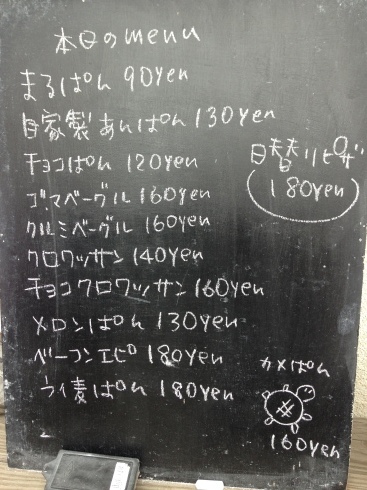 本日のmenu
まるぱん 90yen
自家製あんぱん 130yen
チョコぱん 120yen
ゴマベーグル 160yen
クルミベーグル 160yen
クロワッサン 140yen
チョコクロワッサン 160yen
メロンぱん 130yen
ベーコンエピ 180yen
ライ麦ぱん 180yen
日替りピザ
(180yen)
カメぱん
160yen